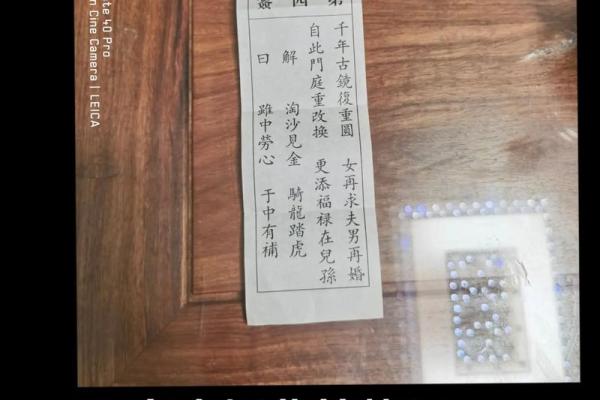 第四
千年古鏡復重圓 女再求夫男再婚
自此門庭重改換 更添福祿在兒孫
解 淘沙見金 騎龍踏虎
曰 雖中勞心 于中有補
40 Pro
Cine Camera | LEICA